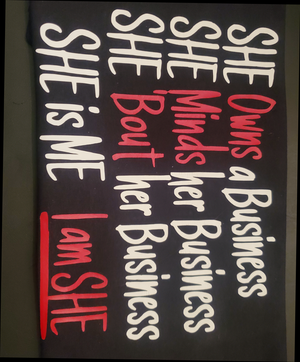 SHE Owns a Business
SHE Minds her Business
SHE 'Bout her Business
SHE is ME I am SHE